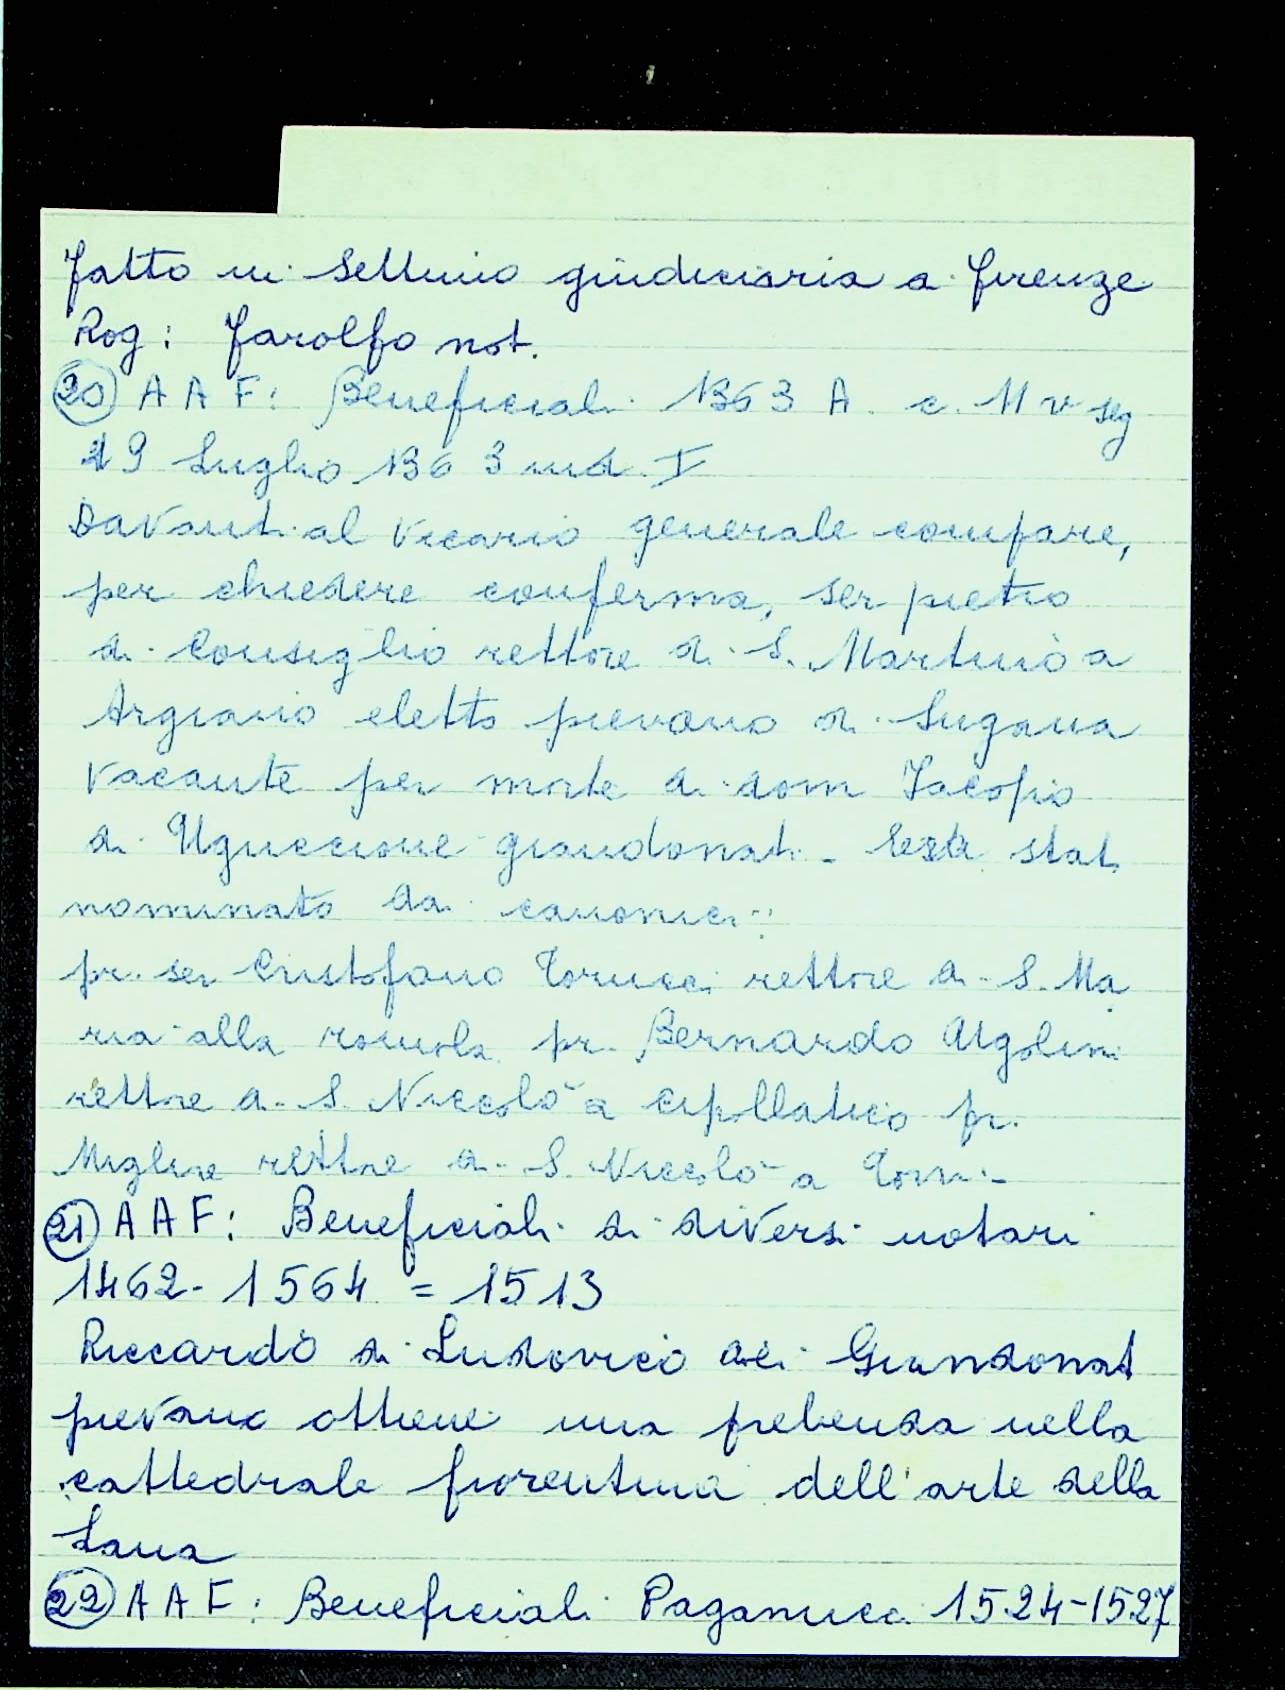 fatto in Settimo giudiciaria a firenze
Rog: farolfo not.
20 AAF: Beneficiali 1363 A. c. 11 v seg
19 Luglio 1363 ind. I
Davanti al vicario generale compare,
per chiedere conferma, ser pietro
di Consiglio rettore di S. Martino a
Argiano eletto pievano di Sugana
vacante per morte di dom Jacopo
di Uguccione giandonati - stat
nominato da canonici:
pr. ser Cristofano Torucci rettore di S. Ma
ria alla romola pr. Bernardo Ugolini
rettore di S. Niccolò a cipollatico pr.
Migliore rettore di S. Niccolò a Torri -
21 AAF: Beneficiali di diversi notari
1462-1564 = 1513
Riccardo di Ludovico dei Giandonat
pievano ottiene una prebenda nella
cattedrale fiorentina dell'arte della
Lana
22 AAF: Beneficiali Paganucci 1524-1527